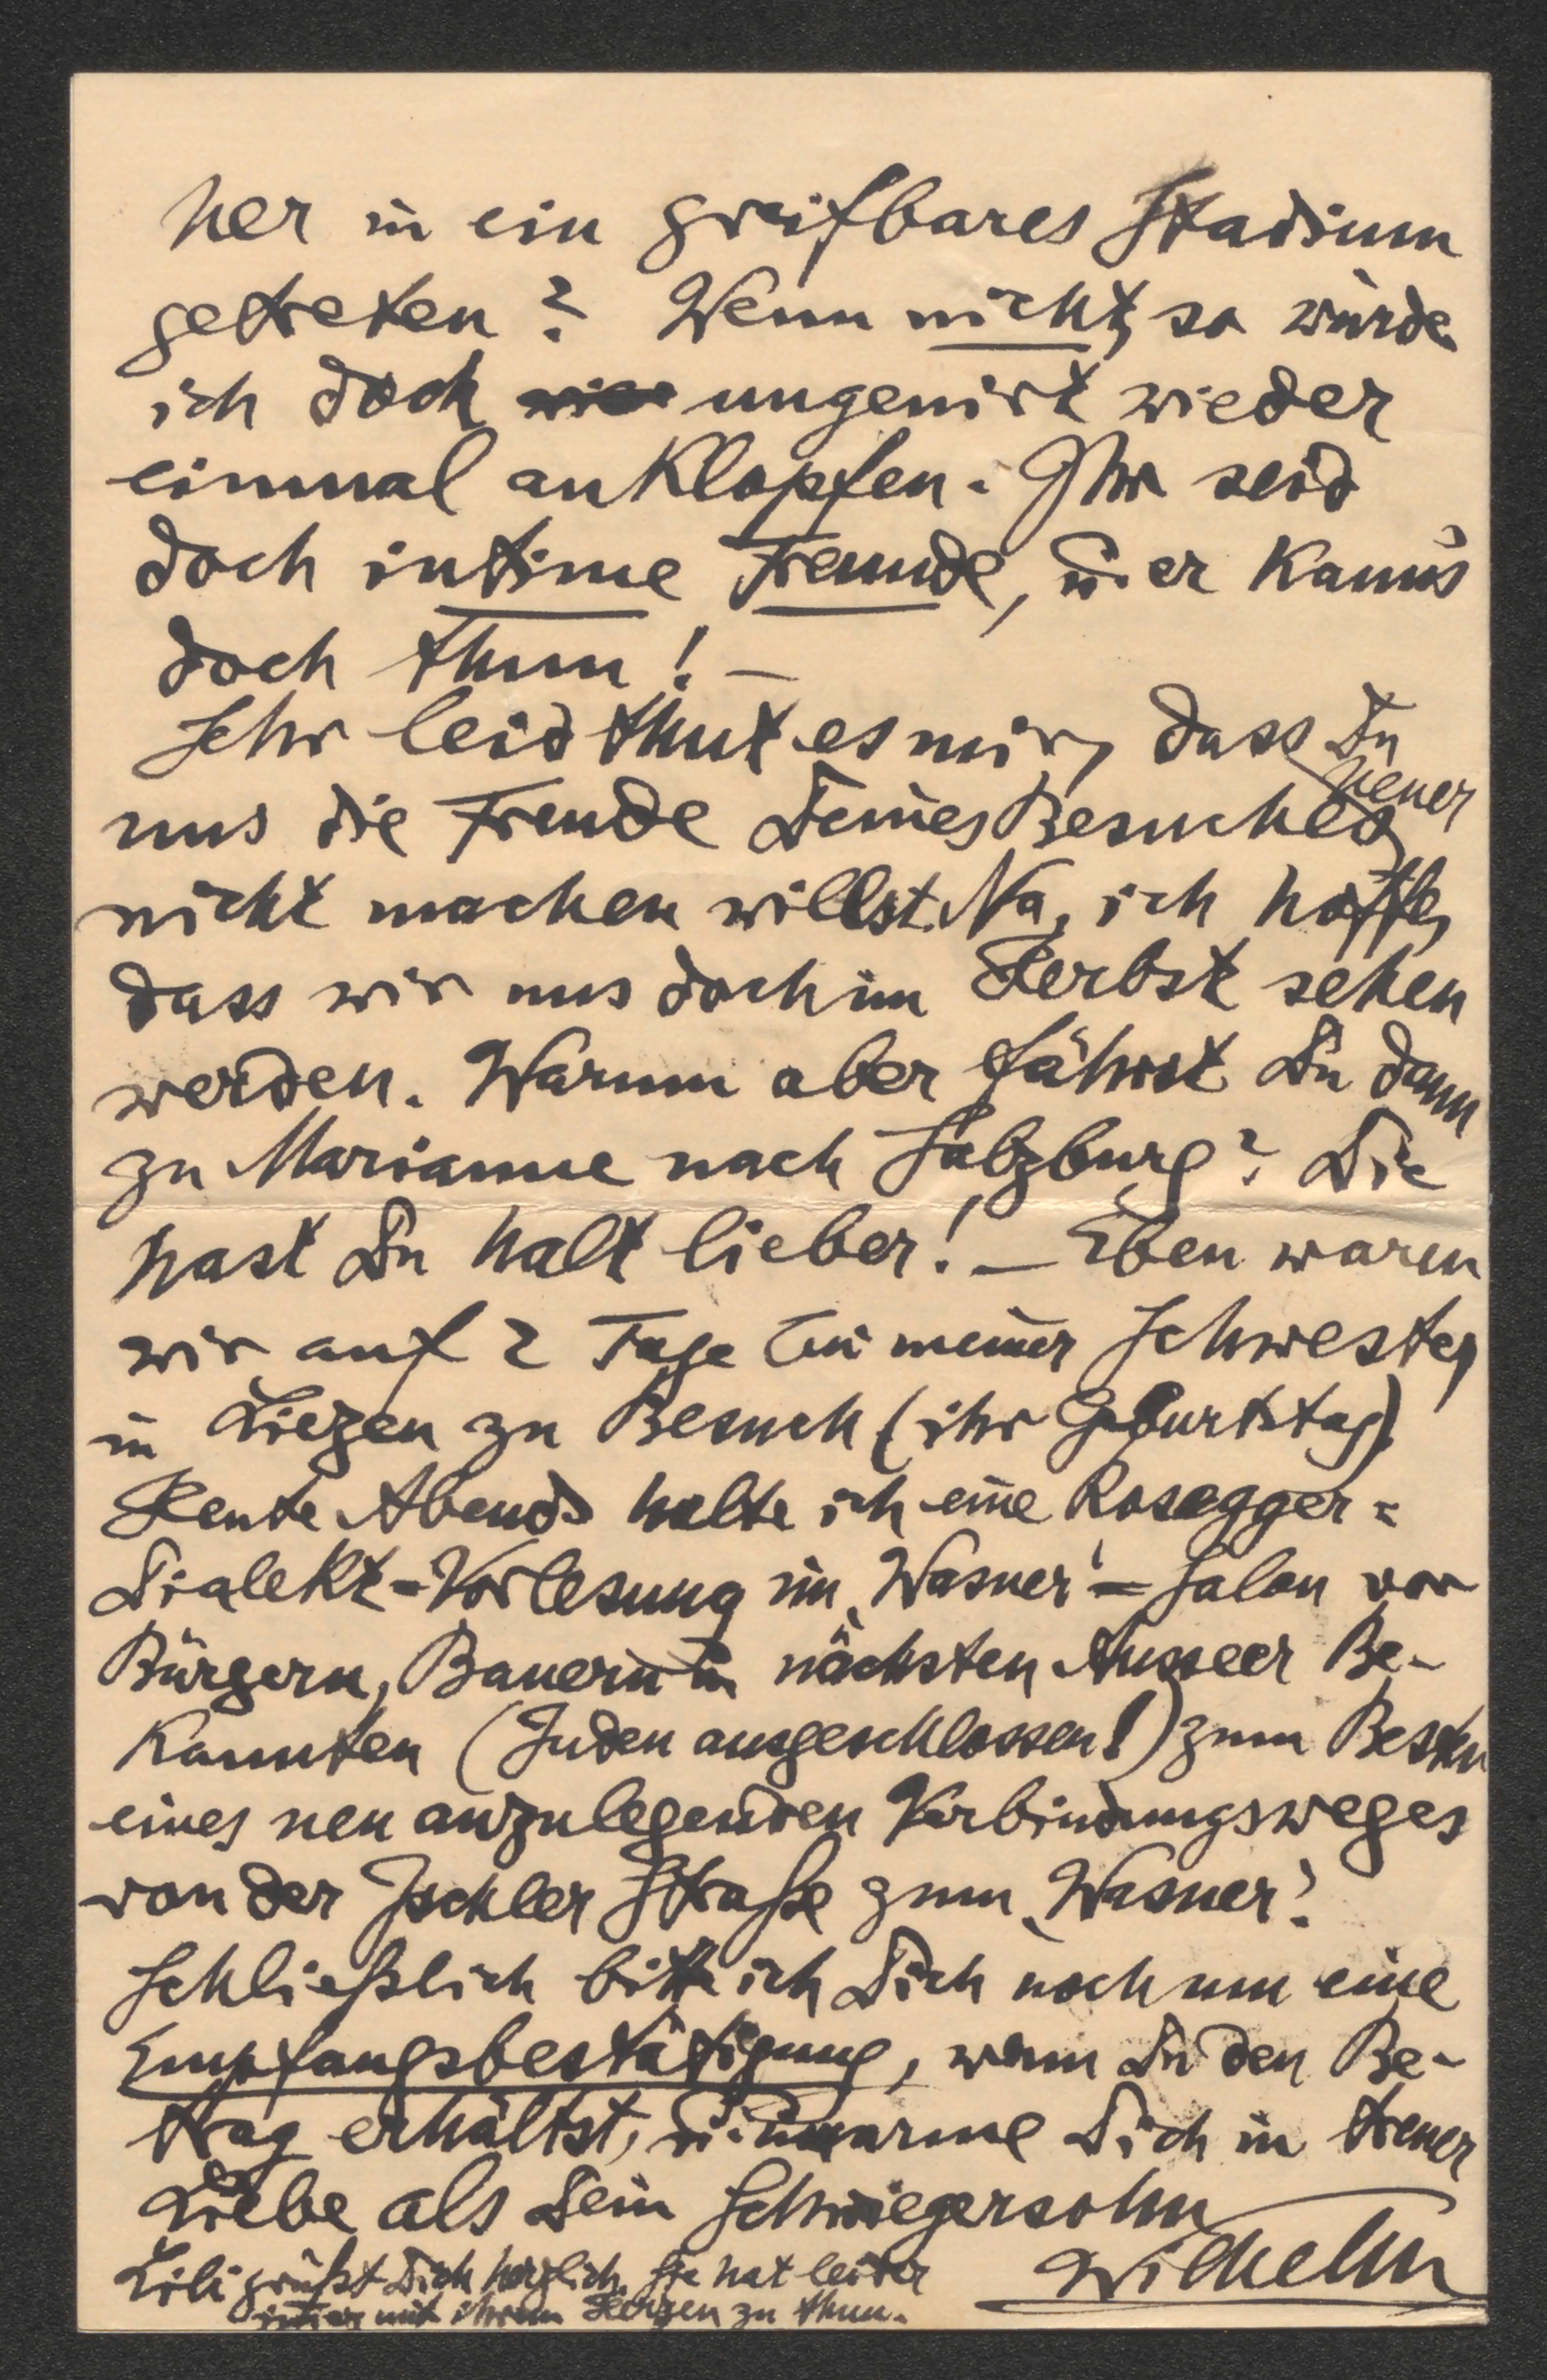 her in ein greifbares Stadium
getreten? Wenn nicht, so würde
ich doch ungenirt wieder
einmal anklopfen. Ihr seid
doch intime Freunde, u. er kann's
doch thun! –
Sehr leid thut es mir, dass Du
uns die Freude Deines Besuches heuer
nicht machen willst. Na, ich hoffe,
dass wir uns doch im Herbst sehen
werden. Warum aber fährst Du dann
zu Marianne nach Salzburg? Die
hast Du halt lieber! – Eben waren
wir auf 2 Tage bei meiner Schwester
in Liezen zu Besuch (ihr Geburtstag)
Heute Abends halte ich eine Rosegger=
Dialekt-Vorlesung im ‚Wasner'=Salon vor
Bürgern, Bauern u. nächsten Ausseer Be-
kannten (Juden ausgeschlossen!) zum Besten
eines neu anzulegenden Verbindungsweges
von der Ischler Straße zum ‚Wasner'.
Schließlich bitte ich Dich noch um eine
Empfangsbestätigung, wenn Du den Be-
trag erhältst, u. umarme Dich in treuer
Liebe als Dein Schwiegersohn
Wilhelm
Lili grüßt Dich herzlich. Sie hat leider
immer mit ihrem Herzen zu thun.